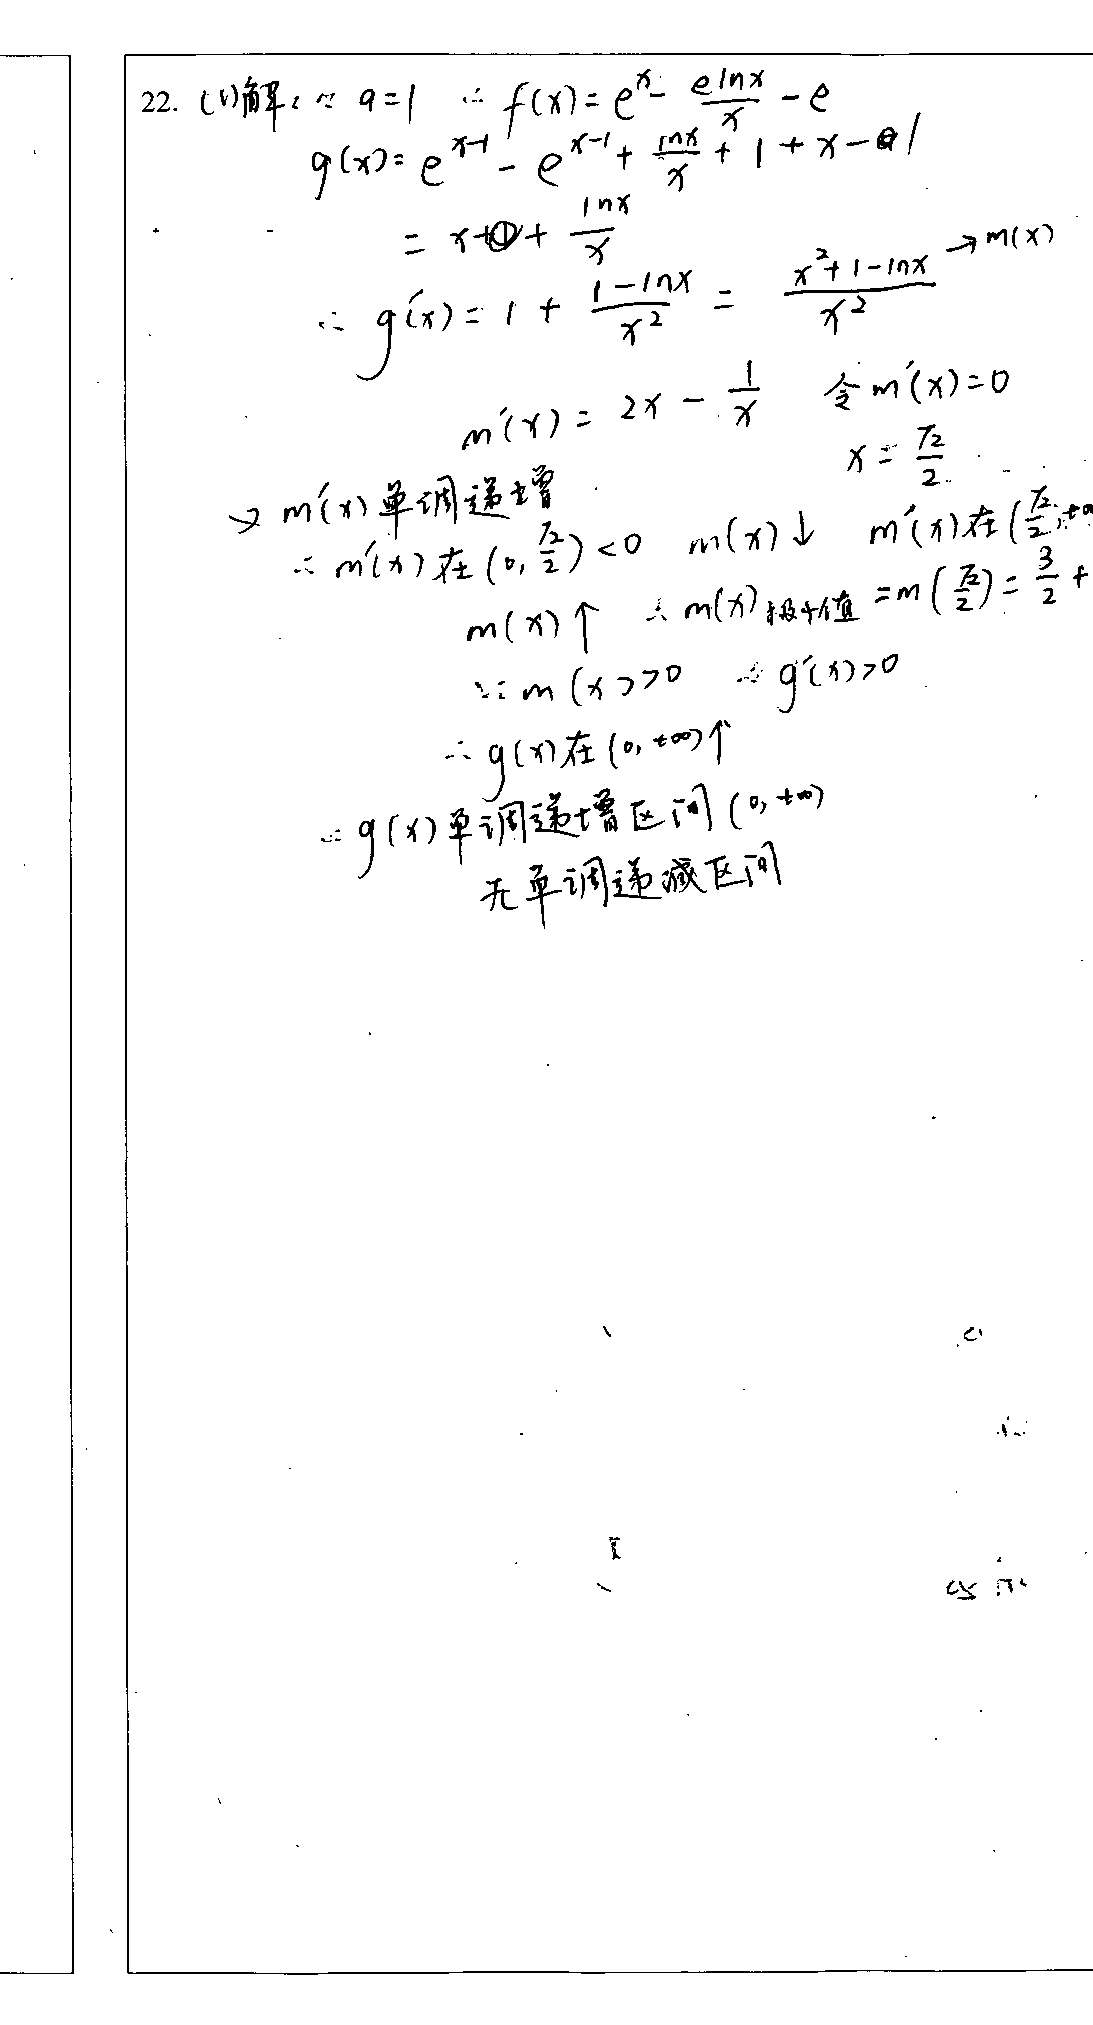 22. (1)解: ∵ a=1 ∴ f(x)=e^x - \frac{elnx}{x} - e
g(x)= e^{x-1} - e^{x-1} + \frac{lnx}{x} + 1 + x - 1
= x + \frac{lnx}{x}
∴ g'(x) = 1 + \frac{1-lnx}{x^2} = \frac{x^2+1-lnx}{x^2} → m(x)
m'(x) = 2x - \frac{1}{x} 令 m'(x)=0
x = \frac{√2}{2}
→ m'(x) 单调递增
∴ m'(x) 在 (0, \frac{√2}{2}) <0 m(x)↓ m'(x) 在 (\frac{√2}{2}, +∞
m(x)↑ ∴ m(x)极小值 = m(\frac{√2}{2}) = \frac{3}{2} +
∵ m(x)>0 ∴ g'(x)>0
∴ g(x) 在 (0, +∞)↑
∴ g(x) 单调递增区间 (0, +∞)
无单调递减区间